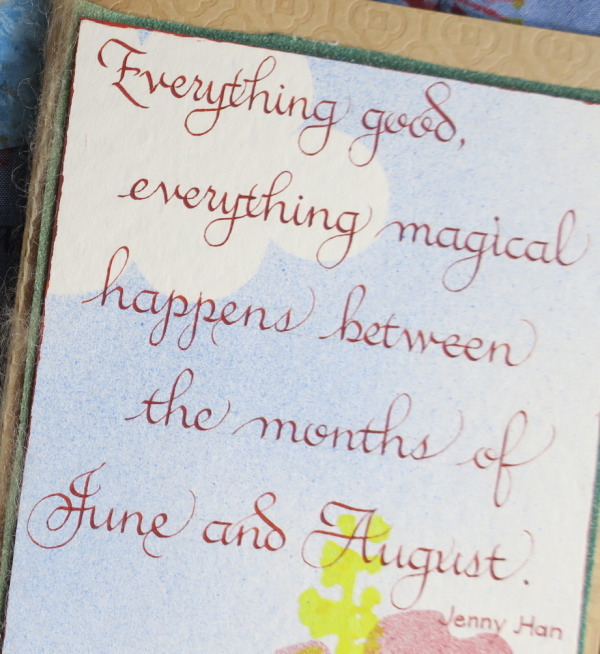 Everything good,
everything magical
happens between
the months of
June and August.
Jenny Han